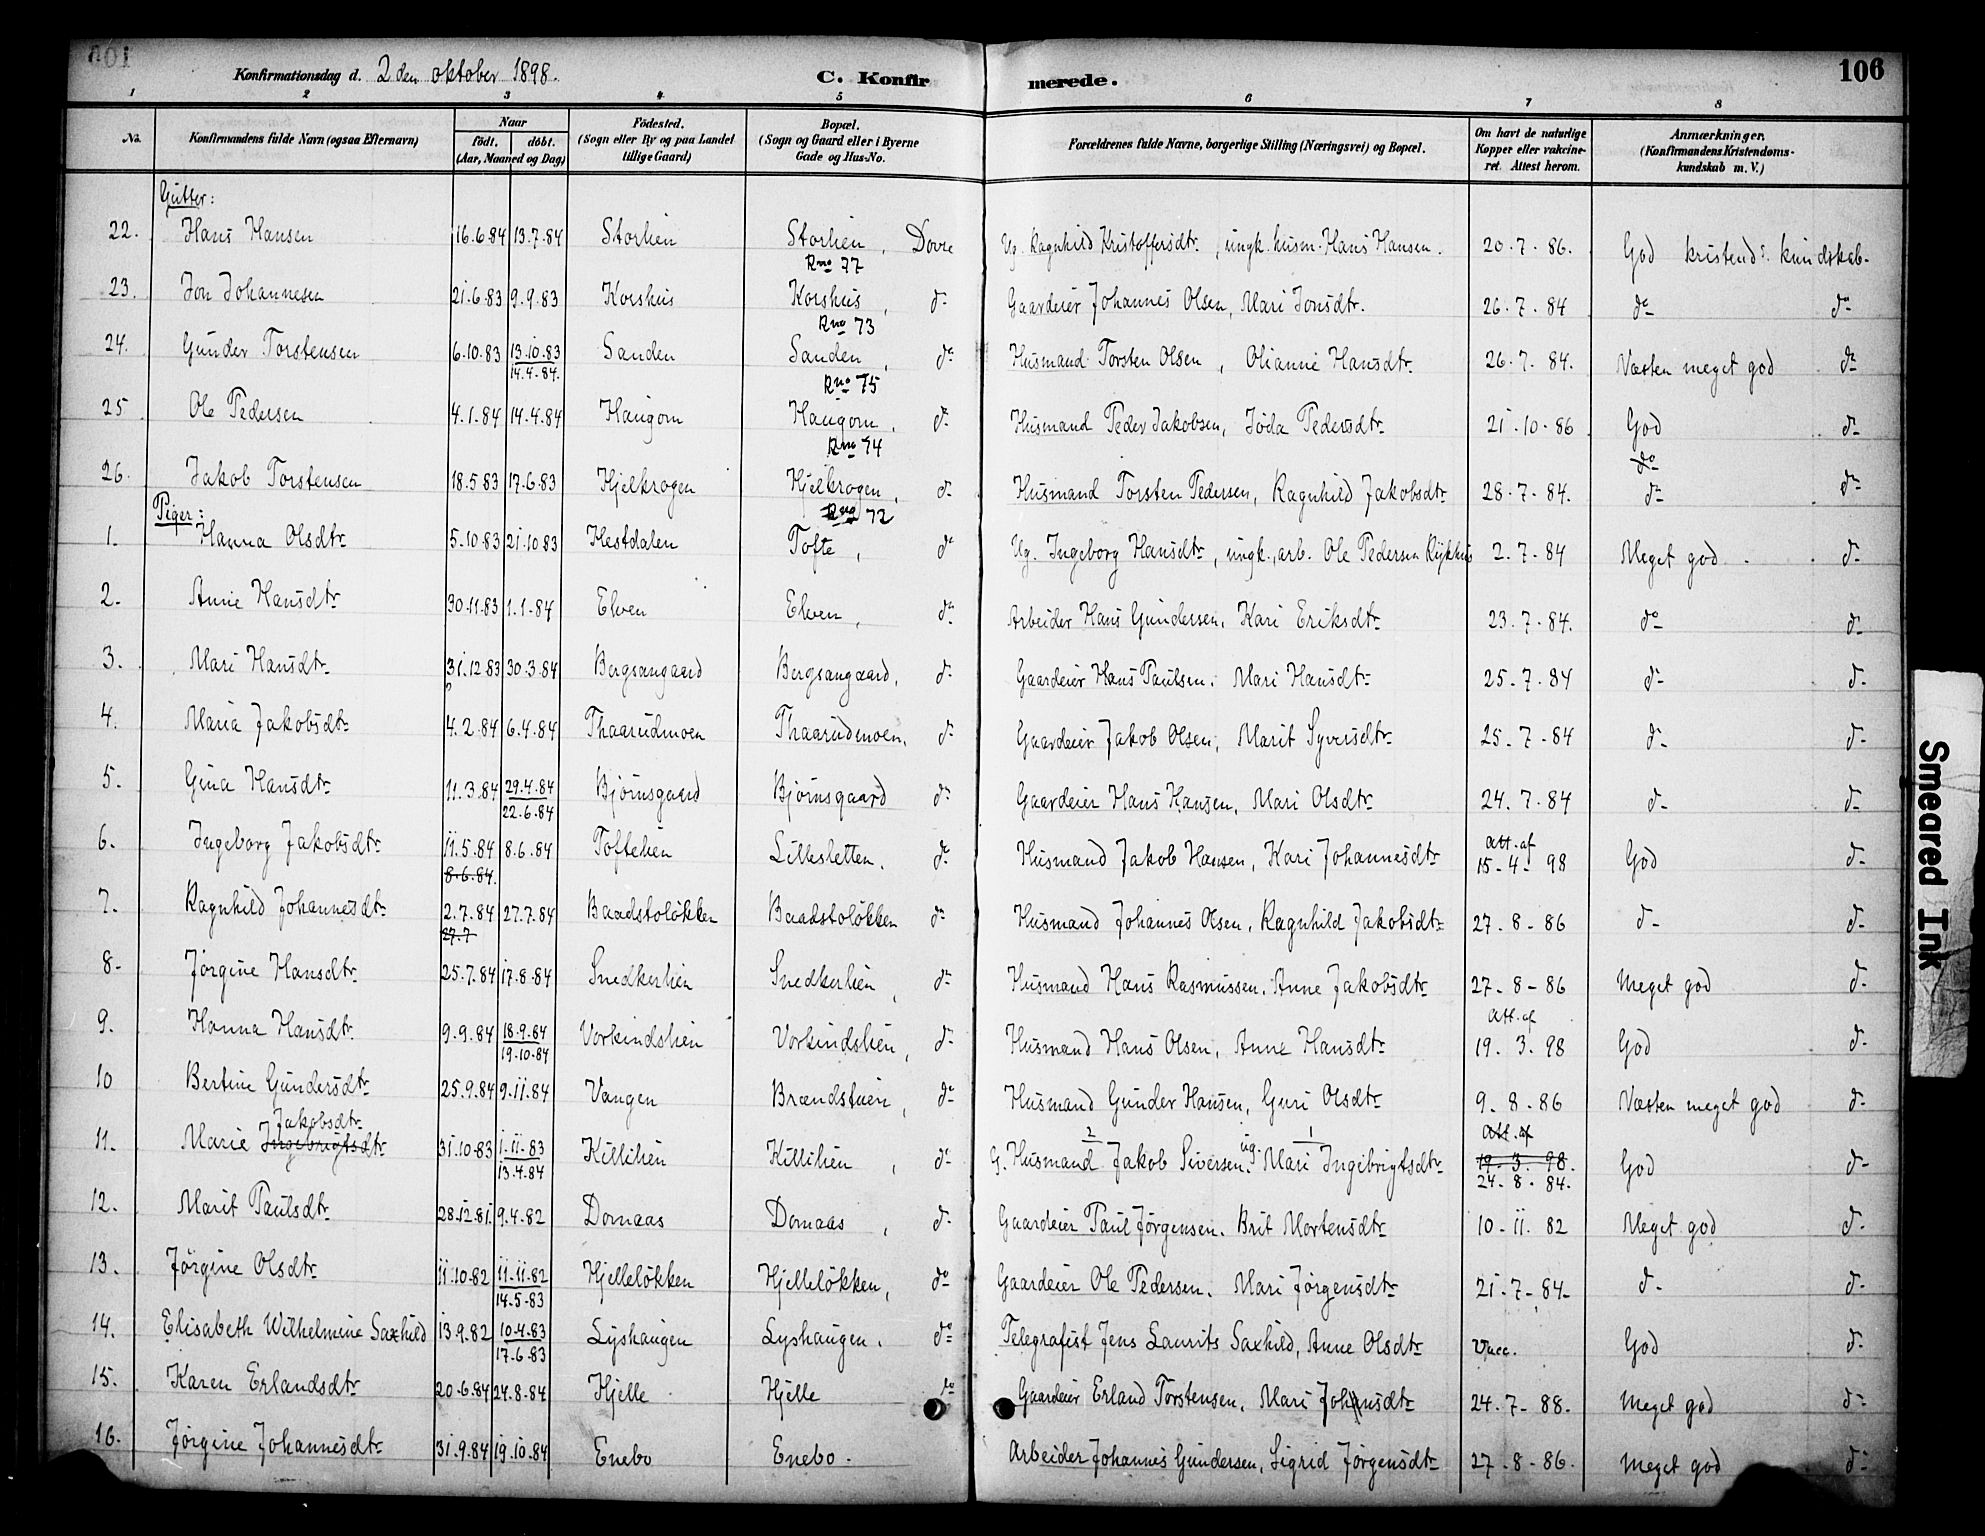 106
Konfirmationsdag d. 2den oktober 1898. C. Konfirmerede.
1 2 3 4 5 6 7 8
No. Konfirmandens fulde Navn (ogsaa Efternavn) Naar födt. döbt. (Aar, Maaned og Dag) Födested. (Sogn eller By og paa Landet tillige Gaard) Bopæl. (Sogn og Gaard eller i Byerne Gade og Hus-No. Forældrenes fulde Navne, borgerlige Stilling (Næringsvei) og Bopæl. Om havt de naturlige Kopper eller vakcineret. Attest herom. Anmærkninger. (Konfirmandens Kristendomskundskab m. V.)
Gutter:
22. Hans Hansen 16.6.84 13.7.84 Storlien Storlien, Dovre Ug. Ragnhild Kristoffersdtr., ungk. husm. Hans Hansen. 20.7.86. God kristends. kundskab.
Rno 77
23. Jon Johannesen 21.6.83 9.9.83 Korshus Korshus, do Gaardeier Johannes Olsen, Mari Jonsdtr. 26.7.84 do do
Rno 73
24. Gunder Torstensen 6.10.83 13.10.83 14.4.84. Sanden Sanden, do Husmand Torsten Olsen, Olianne Hansdtr. 26.7.84. Næsten meget god do
Rno 75
25 Ole Pedersen 4.1.84 14.4.84 Haugom Haugom, do Husmand Peder Jakobsen, Joda Pedersdtr. 21.10.86 God do
Rno 74 do
26. Jakob Torstensen 18.5.83 17.6.83 Hjelkrogen Hjelkrogen, do Husmand Torsten Pedersen, Ragnhild Jakobsdtr. 28.7.84. do do
Rno 72
Piger:
1. Hanna Olsdtr. 5.10.83 21.10.83 Hestdalen Tofte, do Ug. Ingeborg Hansdtr., ungk., arb. Ole Pedersen 2.7.84 Meget god do
2. Anne Hansdtr. 30.11.83 1.1.84 Elven Elven, do Arbeider Hans Gundersen, Kari Eriksdtr. 23.7.84. do do
3. Mari Hansdtr. 31.12.83 30.3.84 Bergsangaard Bergsangaard, do Gaardeier Hans Paulsen, Mari Hansdtr. 25.7.84 do do
4. Maria Jakobsdtr. 4.2.84 6.4.84 Thaarudmoen Thaarudmoen, do Gaardeier Jakob Olsen, Marit Syversdtr. 25.7.84 do do
5. Gina Hansdtr. 11.3.84 29.4.84 22.6.84 Bjørnsgaard Bjørnsgaard do Gaardeier Hans Hansen, Mari Olsdtr. 24.7.84 do do
6. Ingeborg Jakobsdtr. 11.5.84 8.6.84. 8.6.84 Toftelien Lillesletten. do Husmand Jakob Hansen, Kari Johannesdtr. Att. af 15-4-98 God do
7. Ragnhild Johannesdtr. 2.7.84 27.7 27.7.84 Baadstoløkken Baadstoløkken do Husmand Johannes Olsen, Ragnhild Jakobsdtr. 27-8-86 do do
8. Jørgine Hansdtr. 25.7.84 17.8.84 Snedkerlien Snedkerlien, do Husmand Hans Rasmussen, Anne Jakobsdtr. 27-8-86 Meget god do
9. Hanna Hansdtr. 9.9.84 18.9.84 19.10.84 Vorkindslien Vorkindslien, do Husmand Hans Olsen, Anne Hansdtr. Att. af 19.3.98 God do
10 Bertine Gundersdtr. 25.9.84 9.11.84 Vangen Brændstuen, do Husmand Gunder Hansen, Guri Olsdtr. 9-8-86 Næsten meget god do
11. Marie Ingebrigtsdtr. Jakobsdtr. 31.10.83 1.11.83 13.4.84 Killilien Killilien, do G. Husmand Jakob Siversen, ug. Mari Ingebrigtsdtr. 2 1 Att. af 19-3.98. 24.8.84. God do
12. Marit Paulsdtr. 28.12.81. 9.4.82 Domaas Domaas, do Gaardeier Paul Jørgensen, Brit Mortensdtr. 10-11.82 Meget god do
13. Jørgine Olsdtr. 11.10.82 11.11.82 14.5.83 Hjelleløkken Hjelleløkken, do Gaardeier Ole Pedersen, Mari Jørgensdtr. 21-7-84 do do
14. Elisabeth Wilhelmine Saxhild 13.9.82 10.4.83 17.6.83 Lyshaugen Lyshaugen, do Telegrafist Jens Laurits Saxhild, Anne Olsdtr. Vacc. God do
15. Karen Erlandsdtr. 20.6.84 24.8.84 Hjelle Hjelle do Gaardeier Erland Torstensen, Mari Johnsdtr. 24.7-88. Meget god do
16. Jørgine Johannesdtr. 31.9.84 19.10.84 Enebo Enebo. Arbeider Johannes Gundersen, Sigrid Jørgensdtr. 27-8-86. Meget god do
Smeared Ink